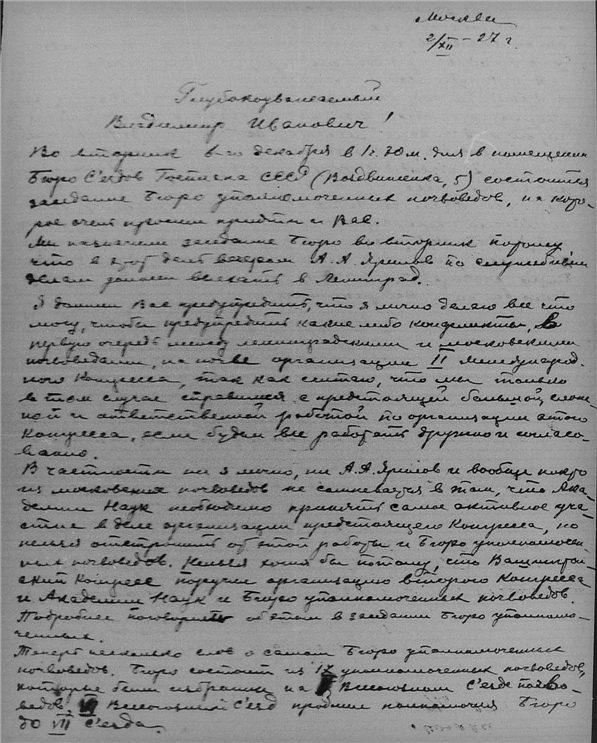 Москва
2/XII – 27 г.
Глубокоуважаемый
Владимир Иванович!
Во вторник 6-го декабря в 1 ч. 30 м. дня в помещении
Бюро С'ездов Госплана СССР (Воздвиженка, 5) состоится
заседание Бюро уполномоченных почвоведов, на кото-
рое очень просим прийти и Вас.
Мы назначили заседание Бюро во вторник потому
что в этот день вечером А.А. Ярилов по служебным
делам должен выехать в Ленинград.
Я должен Вас предупредить, что я лично делаю все что
могу, чтобы предупредить какие либо конфликты, в
первую очередь между ленинградскими и московскими
почвоведами, на почве организации II Международ-
ного Конгресса, так как считаю, что мы только
в том случае справимся с предстоящей большой, слож-
ной и ответственной работой по организации этого
Конгресса, если будем все работать дружно и согласо-
ванно.
В частности ни я лично, ни А.А. Ярилов и вообще никто
из московских почвоведов не сомневается в том, что Ака-
демии Наук необходимо принять самое активное уча-
стие в деле организации предстоящего Конгресса, но
нельзя отстранить от этой работы и Бюро уполномочен-
ных почвоведов. Нельзя хотя бы потому, что Вашингтон-
ский Конгресс поручил организацию второго Конгресса
и Академии Наук и Бюро уполномоченных почвоведов.
Подробнее поговорим об этом в заседании Бюро уполномо-
ченных.
Теперь несколько слов о самом Бюро уполномоченных
почвоведов. Бюро состоит из 17 уполномоченных почвоведов,
которые были избраны на Всесоюзном С'езде почво-
ведов. VI Всесоюзный С'езд продлил полномочия Бюро
до VII С'езда.